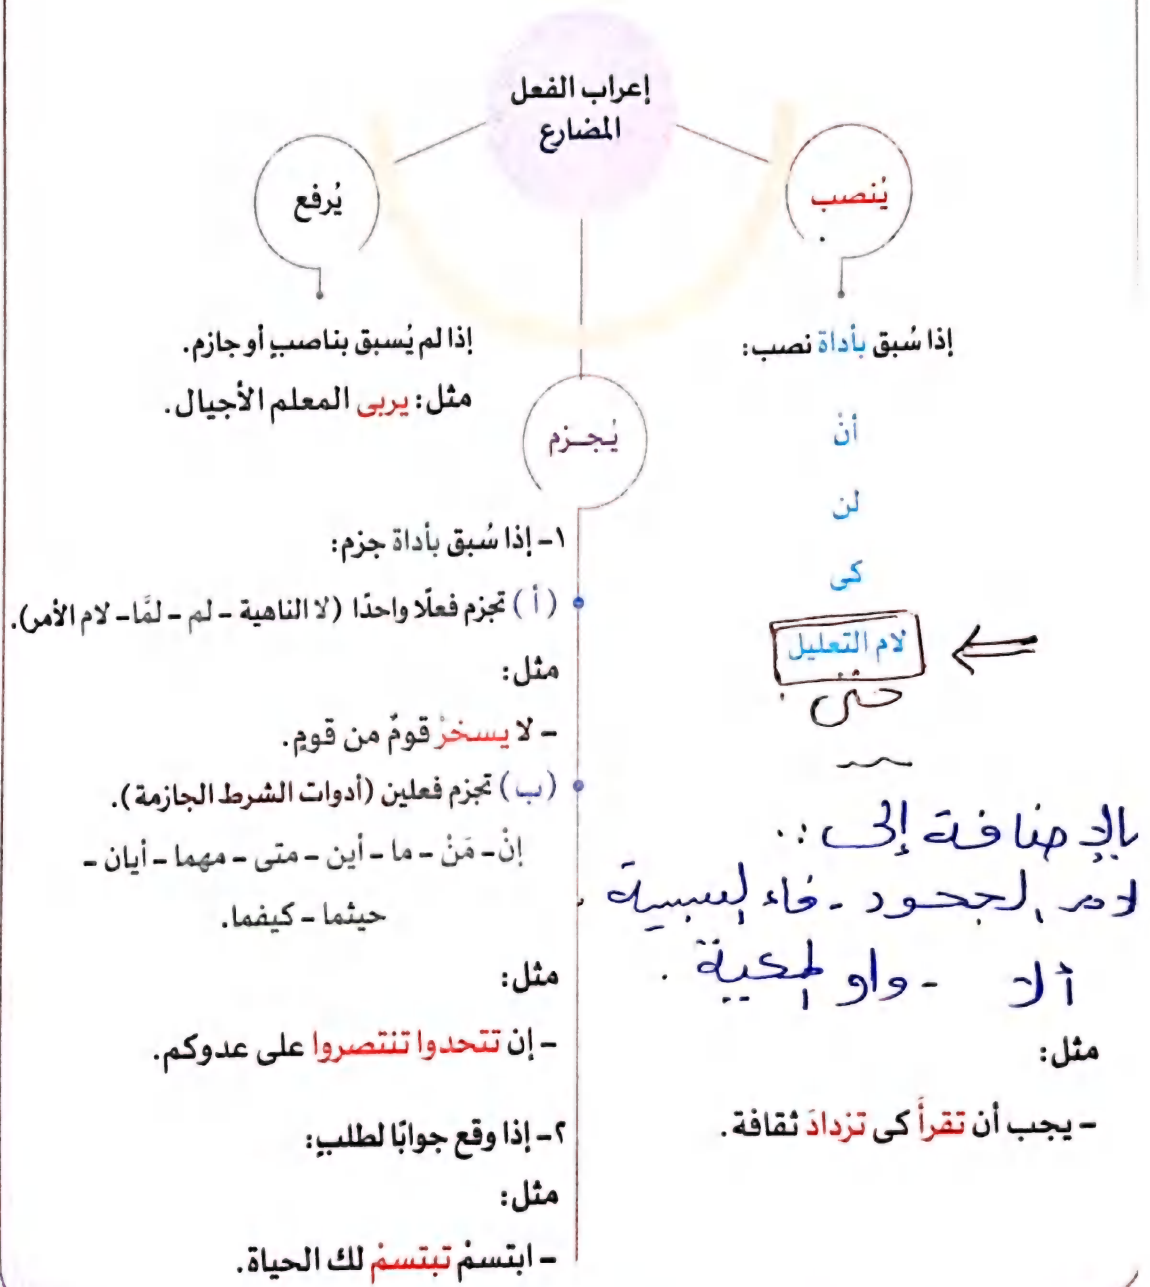 إعراب الفعل
المضارع
يُنصب
إذا سُبق بأداة نصب:
أنْ
لن
كى
لام التعليل
حتى
بالإضافة إلى :.
لام الجحود - فاء السببية
ألا - واو المعية .
مثل:
- يجب أن تقرأَ كى تزدادَ ثقافة.
يُرفع
إذا لم يُسبق بناصبٍ أو جازم.
مثل: يربى المعلم الأجيال.
يُجـزم
١- إذا سُبق بأداة جزم:
(أ) تجزم فعلًا واحدًا (لا الناهية - لم - لمَّا - لام الأمر).
مثل:
- لا يسخرْ قومٌ من قومٍ.
(ب) تجزم فعلين (أدوات الشرط الجازمة).
إنْ - مَنْ - ما - أين - متى - مهما - أيان -
حيثما - كيفما.
مثل:
- إن تتحدوا تنتصروا على عدوكم.
٢- إذا وقع جوابًا لطلبٍ:
مثل:
- ابتسمْ تبتسمْ لك الحياة.